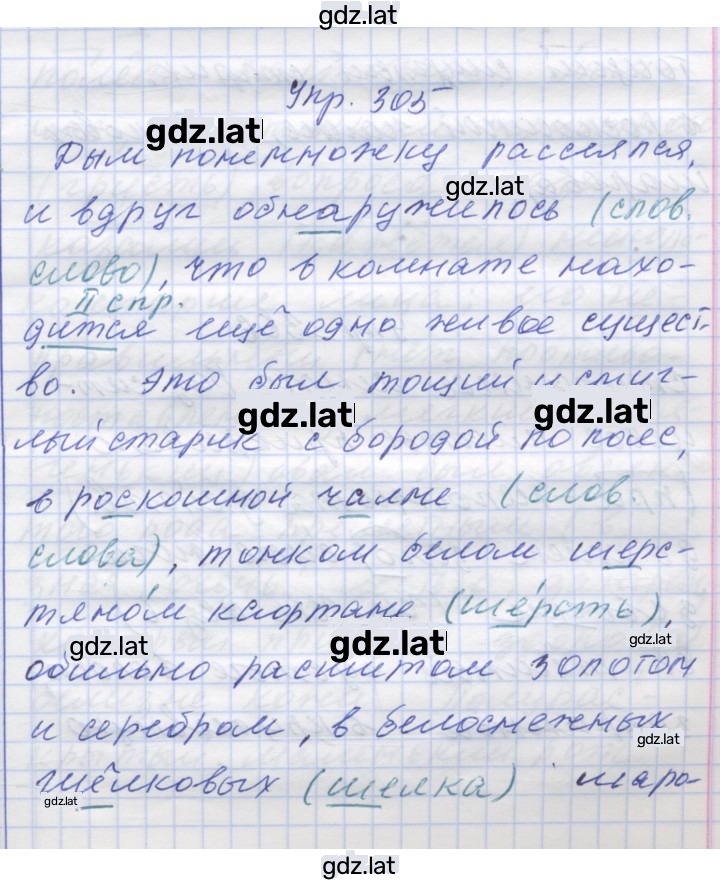 gdz.lat
Упр. 305
gdz.lat
Дым понемножку рассеялся,
gdz.lat
и вдруг обнаружилось (слов.
слово), что в комнате нахо-
II спр.
дится ещё одно живое сущест-
во. Это был тощий и смуг-
gdz.lat gdz.lat
лый старик с бородой по пояс,
в роскошной чалме (слов.
слова), тонком белом шерс-
тяном кафтане (ше́рсть),
gdz.lat gdz.lat gdz.lat
обильно расшитом золотом
и серебром, в белоснежных
gdz.lat
шёлковых (шелка) шаро-
gdz.lat
gdz.lat